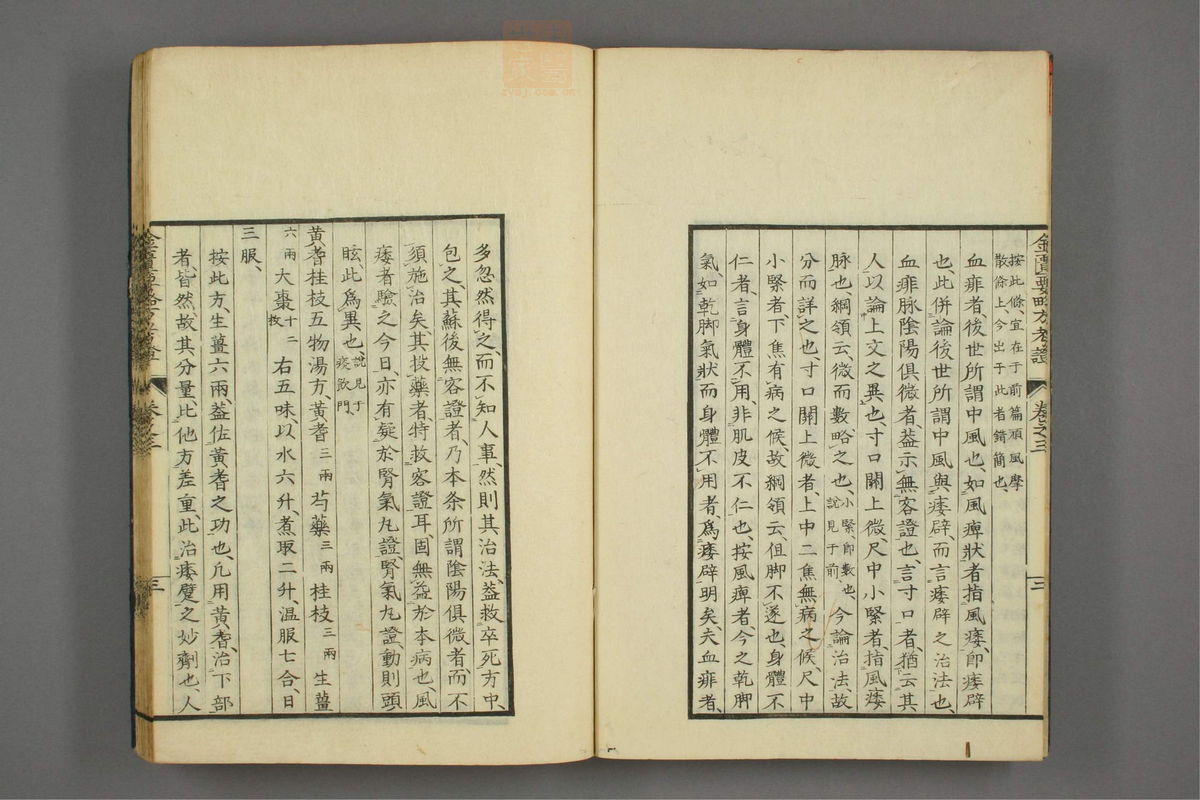 金匱要略方考證 卷之三 三
按此條、宜在于前篇頭風摩
散條上、今出于此者錯簡也、
血痺者、後世所謂中風也、如風痺狀者、指風痿、卽痿躄
也、此併論後世所謂中風與痿躄、而言痿躄之治法也、
血痺脉陰陽俱微者、葢示無客證也、言寸口者、猶云其
人以論上文之異也、寸口關上微、尺中小緊者、指風痿
脉也、綱領云、微而數、略之也、小緊、卽數也、說見于前 今論治法、故
分而詳之也、寸口關上微者、上中二焦無病之候、尺中
小緊者、下焦有病之候、故綱領云、但脚不遂也、身體不
仁者、言身體不用、非肌皮不仁也、按風痺者、今之乾脚
氣、如乾脚氣狀而身體不用者、爲痿躄明矣、夫血痺者、
多忽然得之、而不知人事、然則其治法、葢救卒死方中、
包之、其蘇後無客證者、乃本条所謂陰陽俱微者、而不
須施治矣、其投藥者、特救客證耳、固無益於本病也、風
痿者驗之今日、亦有疑於腎氣丸證、腎氣丸證、動則頭
眩、此爲異也、說見于痰飮門
黃耆桂枝五物湯方、黃耆三兩 芍藥三兩 桂枝三兩 生薑
六兩 大棗十二枚 右五味、以水六升、煮取二升、溫服七合、日
三服、
按此方、生薑六兩、葢佐黃耆之功也、凡用黃耆、治下部
者、皆然、故其分量、比他方差重、此治痿躄之妙劑也、人
卷之三 三